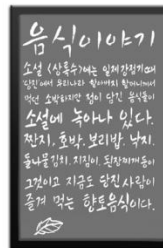 음식이야기
소설 <상록수>에는 일제강점기때
당진에서 우리나라 할아버지 할머니께서
먹던 소박하지만 정이 담긴 음식들이
소설에 녹아나 있다.
짠지, 호박, 보리밥, 낙지,
들나물김치, 지짐이, 된장찌개등이
그것이고 지금도 당진 사람이
즐겨 먹는 향토음식이다.